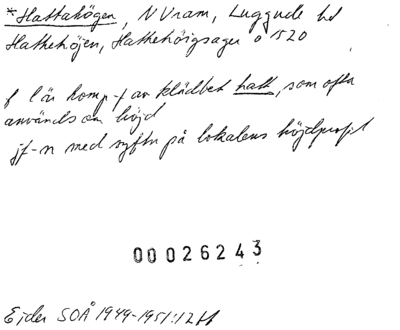 *Hattahögen, N Vram, Luggude hd
Hattehöjen, Hattehöigsager ö 1520
f l än komp-f av klädbet hatt, som ofta
används om höjd
jf-n med syftn på lokalens höjdprofil
00026243
Ejder SOÅ 1949-1951:12ff